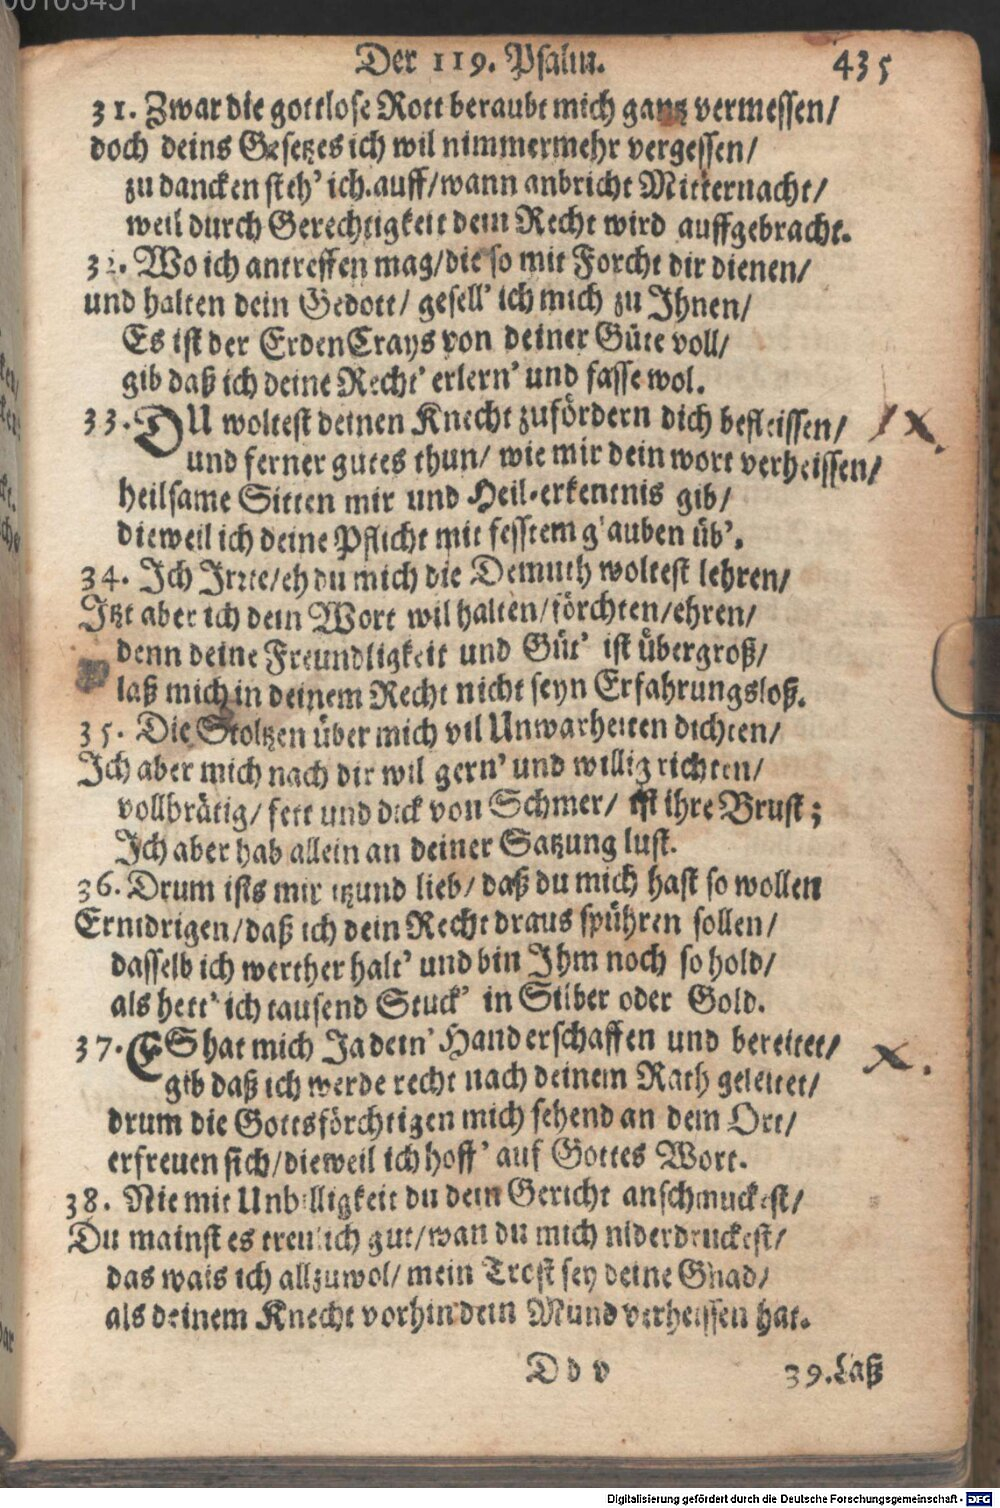 00103451
Der 119. Psalm. 435
31. Zwar die gottlose Rott beraubt mich gantz vermessen/
doch deins Gesetzes ich wil nimmermehr vergessen/
zu dancken steh' ich auff/wann anbricht Mitternacht/
weil durch Gerechtigkeit dein Recht wird auffgebracht.
32. Wo ich antreffen mag/die so mit Forcht dir dienen/
und halten dein Gebott/ gesell' ich mich zu Ihnen/
Es ist der Erden Crays von deiner Güte voll/
gib daß ich deine Recht' erlern' und fasse wol.
33. DU woltest deinen Knecht zufördern dich befleissen/ IX.
und ferner gutes thun/ wie mir dein wort verheissen/
heilsame Sitten mir und Heil-erkentnis gib/
dieweil ich deine Pflicht mit festem glauben üb'.
34. Ich Irrte/eh du mich die Demuth woltest lehren/
Itzt aber ich dein Wort wil halten/förchten/ehren/
denn deine Freundligkeit und Güt' ist übergroß/
laß mich in deinem Recht nicht seyn Erfahrungsloß.
35. Die Stoltzen über mich vil Unwarheiten dichten/
Ich aber mich nach dir wil gern' und willig richten/
vollbrätig/ fett und dick von Schmer/ ist ihre Brust;
Ich aber hab allein an deiner Satzung lust.
36. Drum ists mir itzund lieb/ daß du mich hast so wollen
Ernidrigen/daß ich dein Recht draus spühren sollen/
dasselb ich werther halt' und bin Ihm noch so hold/
als hett' ich tausend Stuck' in Silber oder Gold.
37. ES hat mich Ja dein' Hand erschaffen und bereitet/ X.
gib daß ich werde recht nach deinem Rath geleitet/
drum die Gottsförchtigen mich sehend an dem Ort/
erfreuen sich/dieweil ich hoff' auf Gottes Wort.
38. Nie mit Unbilligkeit du dein Gericht anschmuckest/
Du mainst es treulich gut/wan du mich niderdruckest/
das wais ich allzuwol/ mein Trost sey deine Gnad/
als deinem Knecht vorhin dein Mund verheissen hat.
Dd v 39. Laß
Digitalisierung gefördert durch die Deutsche Forschungsgemeinschaft - DFG